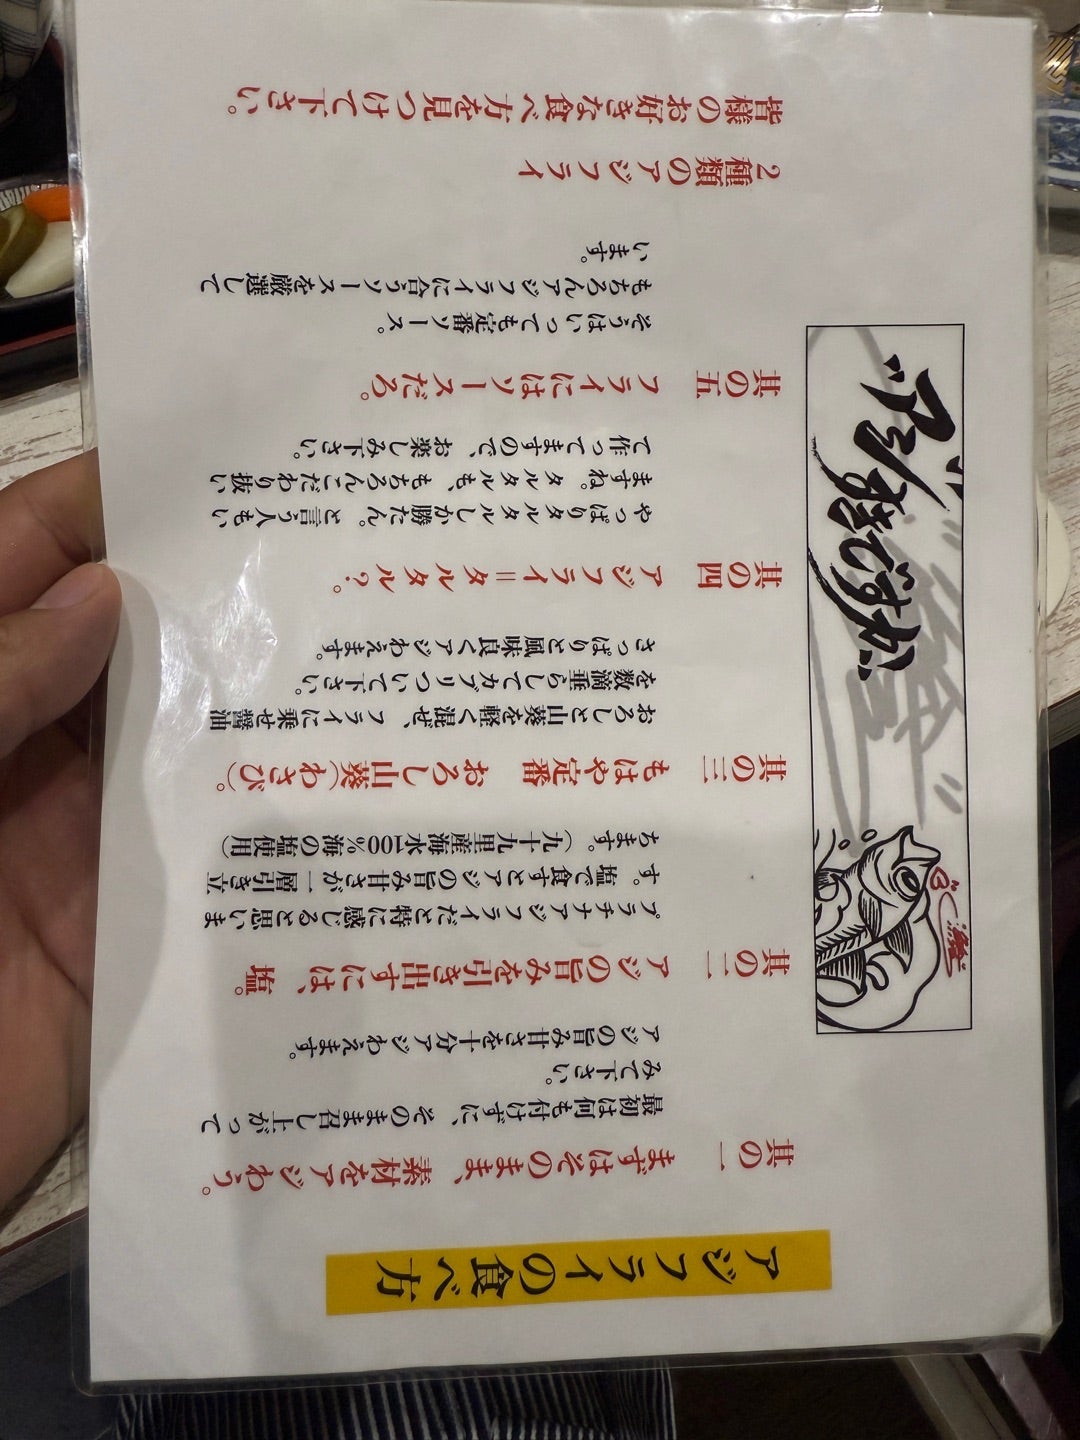 アジフライの食べ方
其の一　まずはそのまま、素材をアジわう。
最初は何も付けずに、そのまま召し上がって
みて下さい。
アジの旨み甘さを十分アジわえます。
其の二　アジの旨みを引き出すには、塩。
プラチナアジフライだと特に感じると思いま
す。塩で食すとアジの旨み甘さが一層引き立
ちます。（九十九里産海水100%海の塩使用）
其の三　もはや定番　おろし山葵（わさび）。
おろしと山葵を軽く混ぜ、フライに乗せ醤油
を数滴垂らしてカブリついて下さい。
さっぱりと風味良くアジわえます。
其の四　アジフライ＝タルタル？。
やっぱりタルタルしか勝たん。と言う人もい
ますね。タルタルも、もちろんこだわり抜い
て作ってますので、お楽しみ下さい。
其の五　フライにはソースだろ。
そうはいっても定番ソース。
もちろんアジフライに合うソースを厳選して
います。
2種類のアジフライ
皆様のお好きな食べ方を見つけて下さい。
アジすきですか